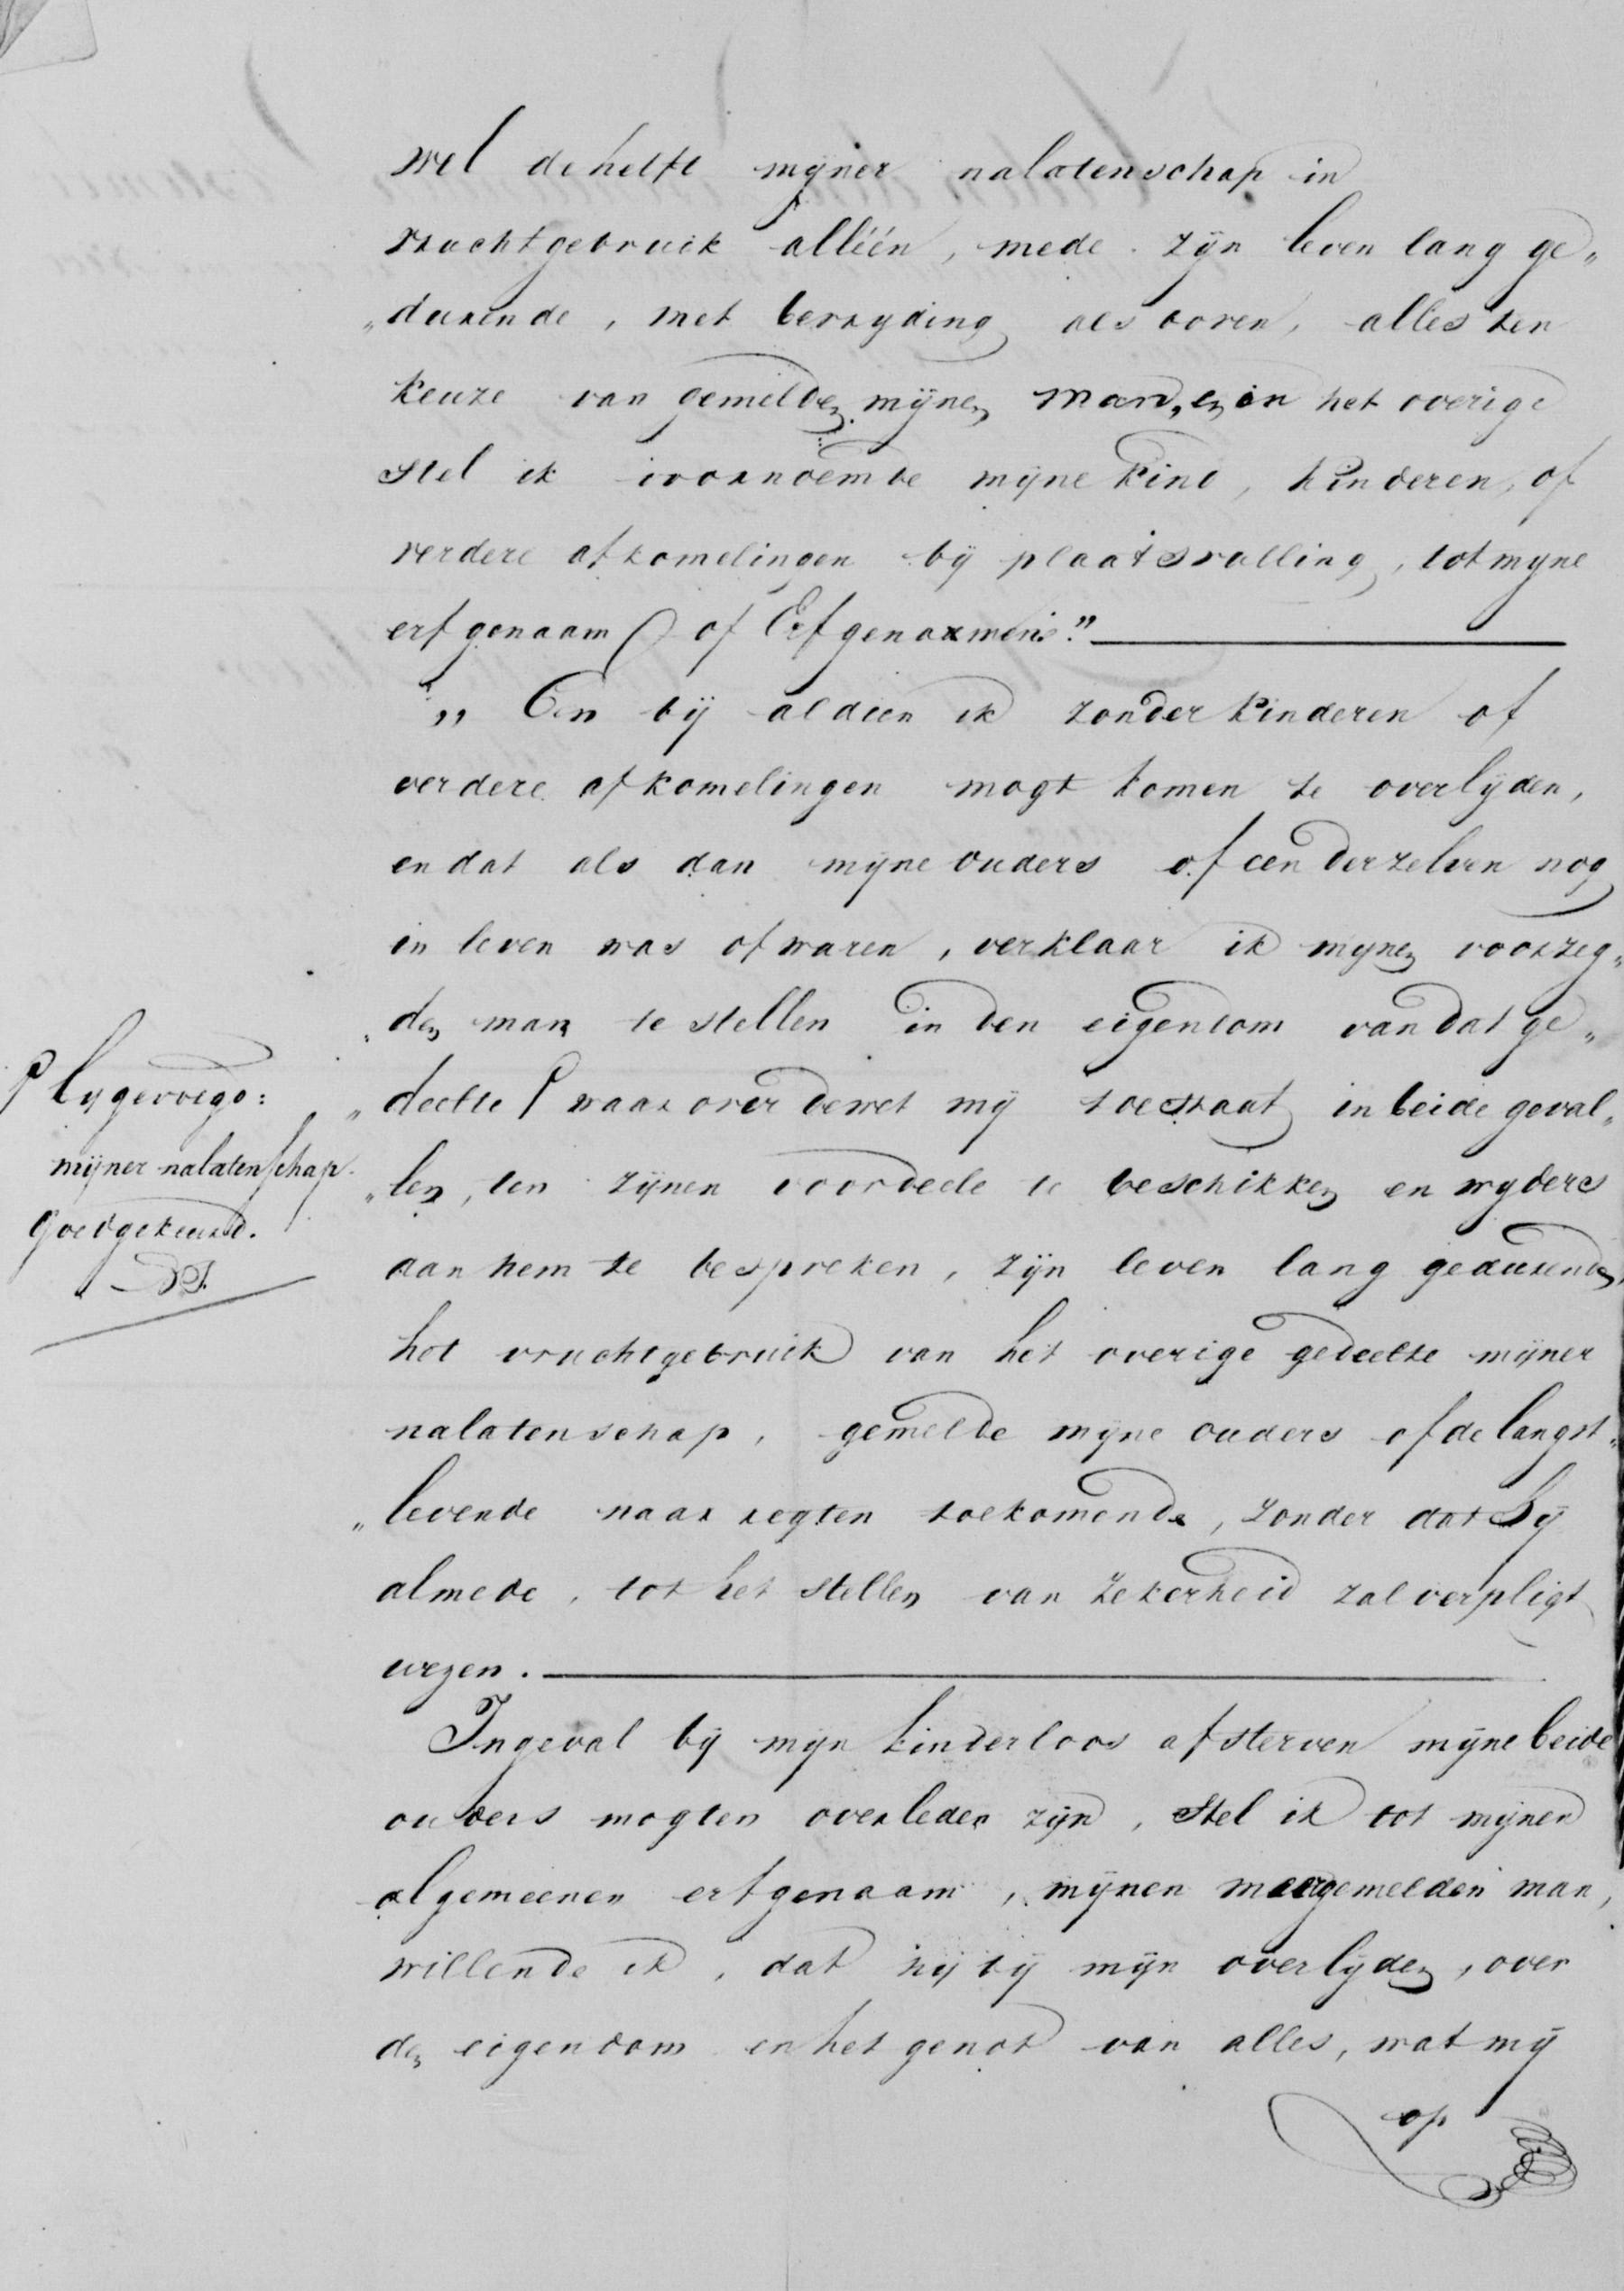 wel de helft mijner nalatenschap in
vruchtgebruik alléén, mede zijn leven lang ge„
„durende, met bevryding als boven, alles ten
keuze van gemelden mijnen man, en in het overige
stel ik voornoemde mijne kind, kinderen, of
verdere afkomelingen bij plaatsvulling, tot mijne
erfgenaam of Erfgenaamen."
„ En bij aldien ik zonder kinderen of
verdere afkomelingen mogt komen te overlijden,
en dat als dan mijne ouders of een derzelven nog
in leven was of waren, verklaar ik mijnen voorzeg„
„den man te stellen in den eigendom van dat ge„
„deelte ꝑ waarover de wet mij toestaat in beide geval„
„len, ten zijnen voordeele te beschikken en wyders
aan hem te bespreken, zijn leven lang gedurende,
het vruchtgebruik van het overige gedeelte mijner
nalatenschap, gemelde mijne ouders of de langst„
„levende naar regten toekomende, zonder dat hij
almede, tot het stellen van zekerheid zal verpligt
wezen.
Ingeval bij mijn kinderloos afsterven mijne beide
ouders mogten overleden zijn, stel ik tot mijnen
algemeenen erfgenaam, mijnen meergemelden man,
willende ik, dat hij bij mijn overlijden, over
den eigendom en het genot van alles, wat mij
op
ꝑ bygevoegd:
mijner nalatenschap.
Goedgekeurd.